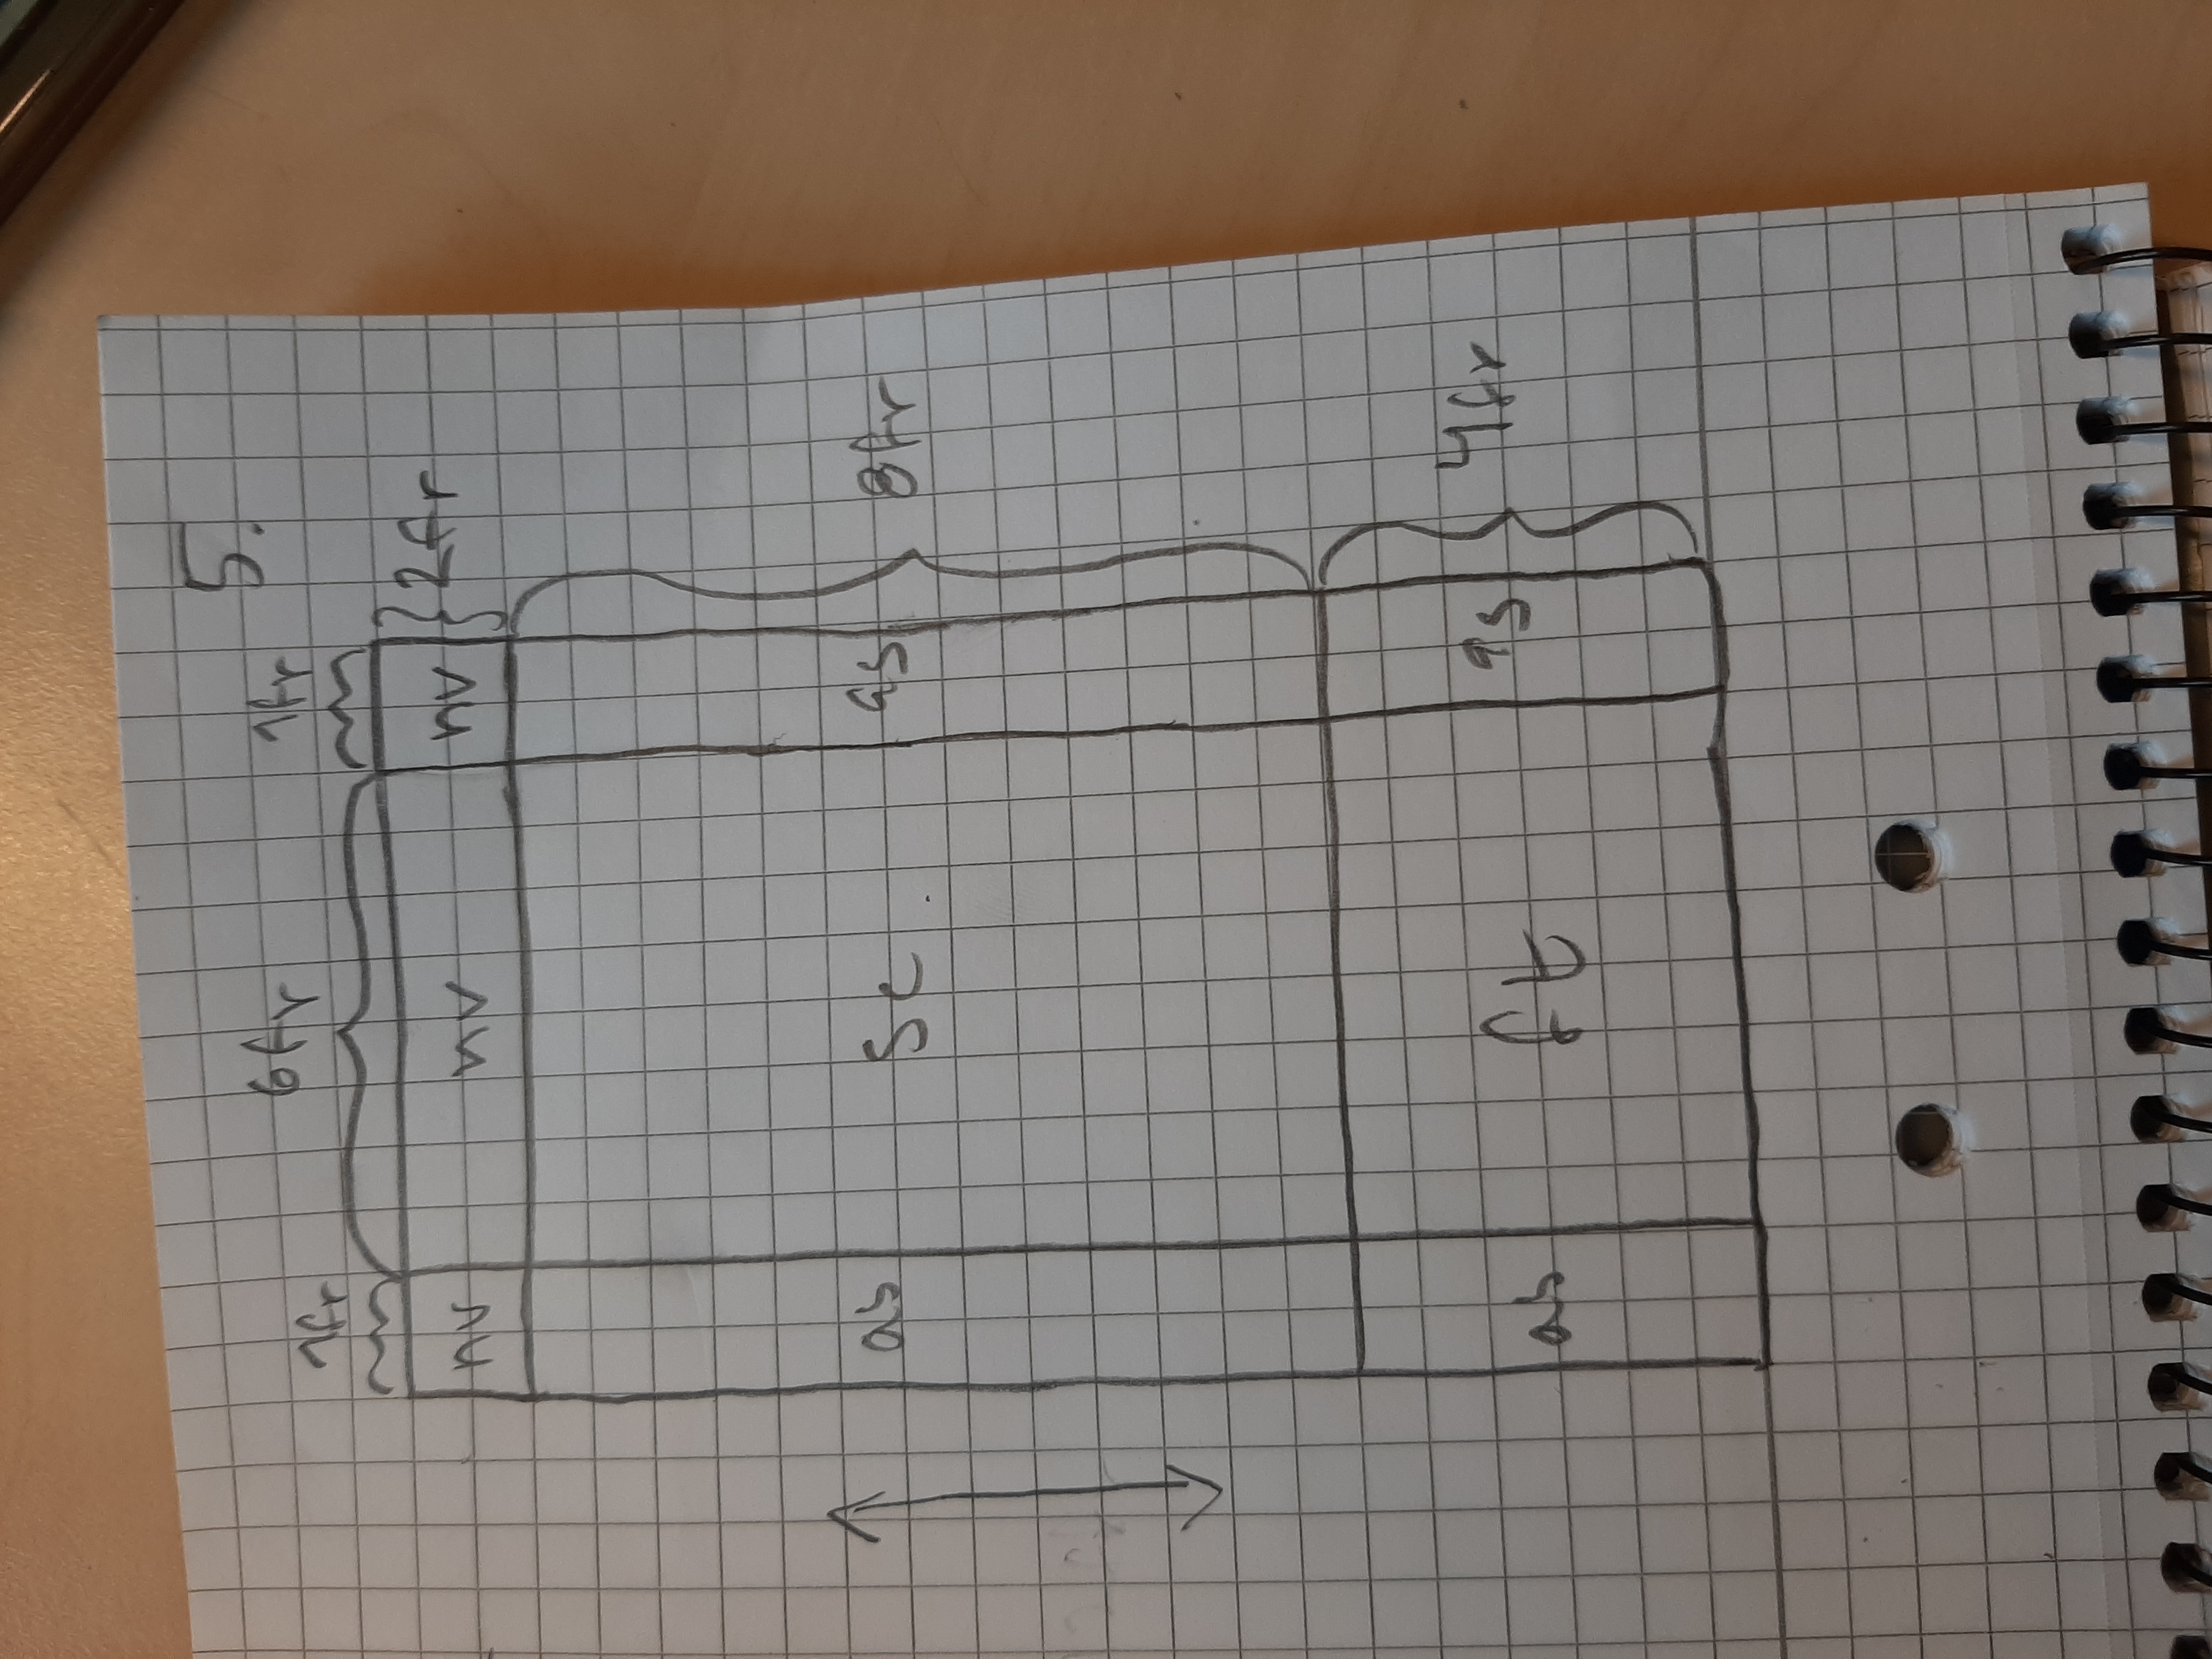 5.
1fr 6fr 1fr
nv nv nv 2fr
as sc as 8fr
as ft as 4fr